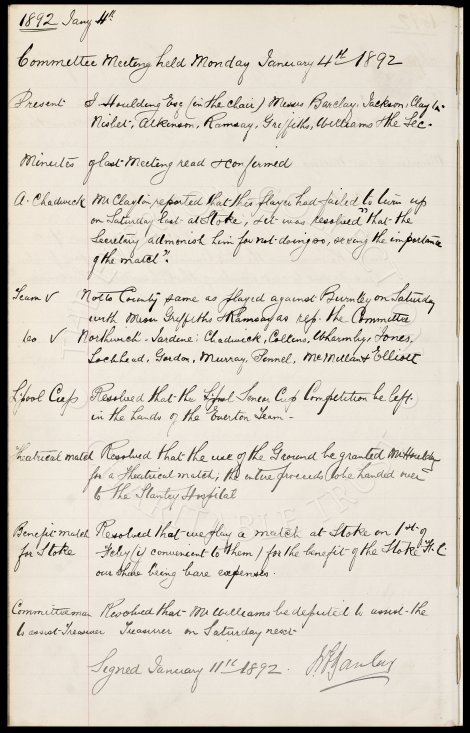 1892 Jany 4th
Committee Meeting held Monday January 4th 1892
Present J Houlding Esq (in the Chair) Messrs Barclay, Jackson, Clayton
Nisbet, Atkinson, Ramsay, Griffiths, Williams & the Sec.
Minutes of last Meeting read & confirmed
A. Chadwick Mr Clayton reported that this player had failed to turn up
on Saturday last at Stoke, & it was resolved that the
Secretary admonish him for not doing so, seeing the importance
of the match.
Team v Notts County same as played against Burnley on Saturday
with Messrs Griffiths & Ramsay as rep. the Committee
Do v Northwich - Jardine: Chadwick, Collins, Wharmby, Jones,
Lochhead, Gordon, Murray, Pennel, McMillan & Elliott
L'pool Cup Resolved that the L'pool Senior Cup Competition be left
in the hands of the Everton Team -
Theatrical match Resolved that the use of the Ground be granted Mr
for a Theatrical match; the entire proceeds to be handed over
to the Stanley Hospital
Benefit match Resolved that we play a match at Stoke on 1st of
for Stoke Feby (if convenient to them) for the benefit of the Stoke F.C.
our share being bare expenses.
Committeeman Resolved that Mr Williams be deputed to assist the
to assist Treasurer Treasurer on Saturday next
Signed January 11th 1892.